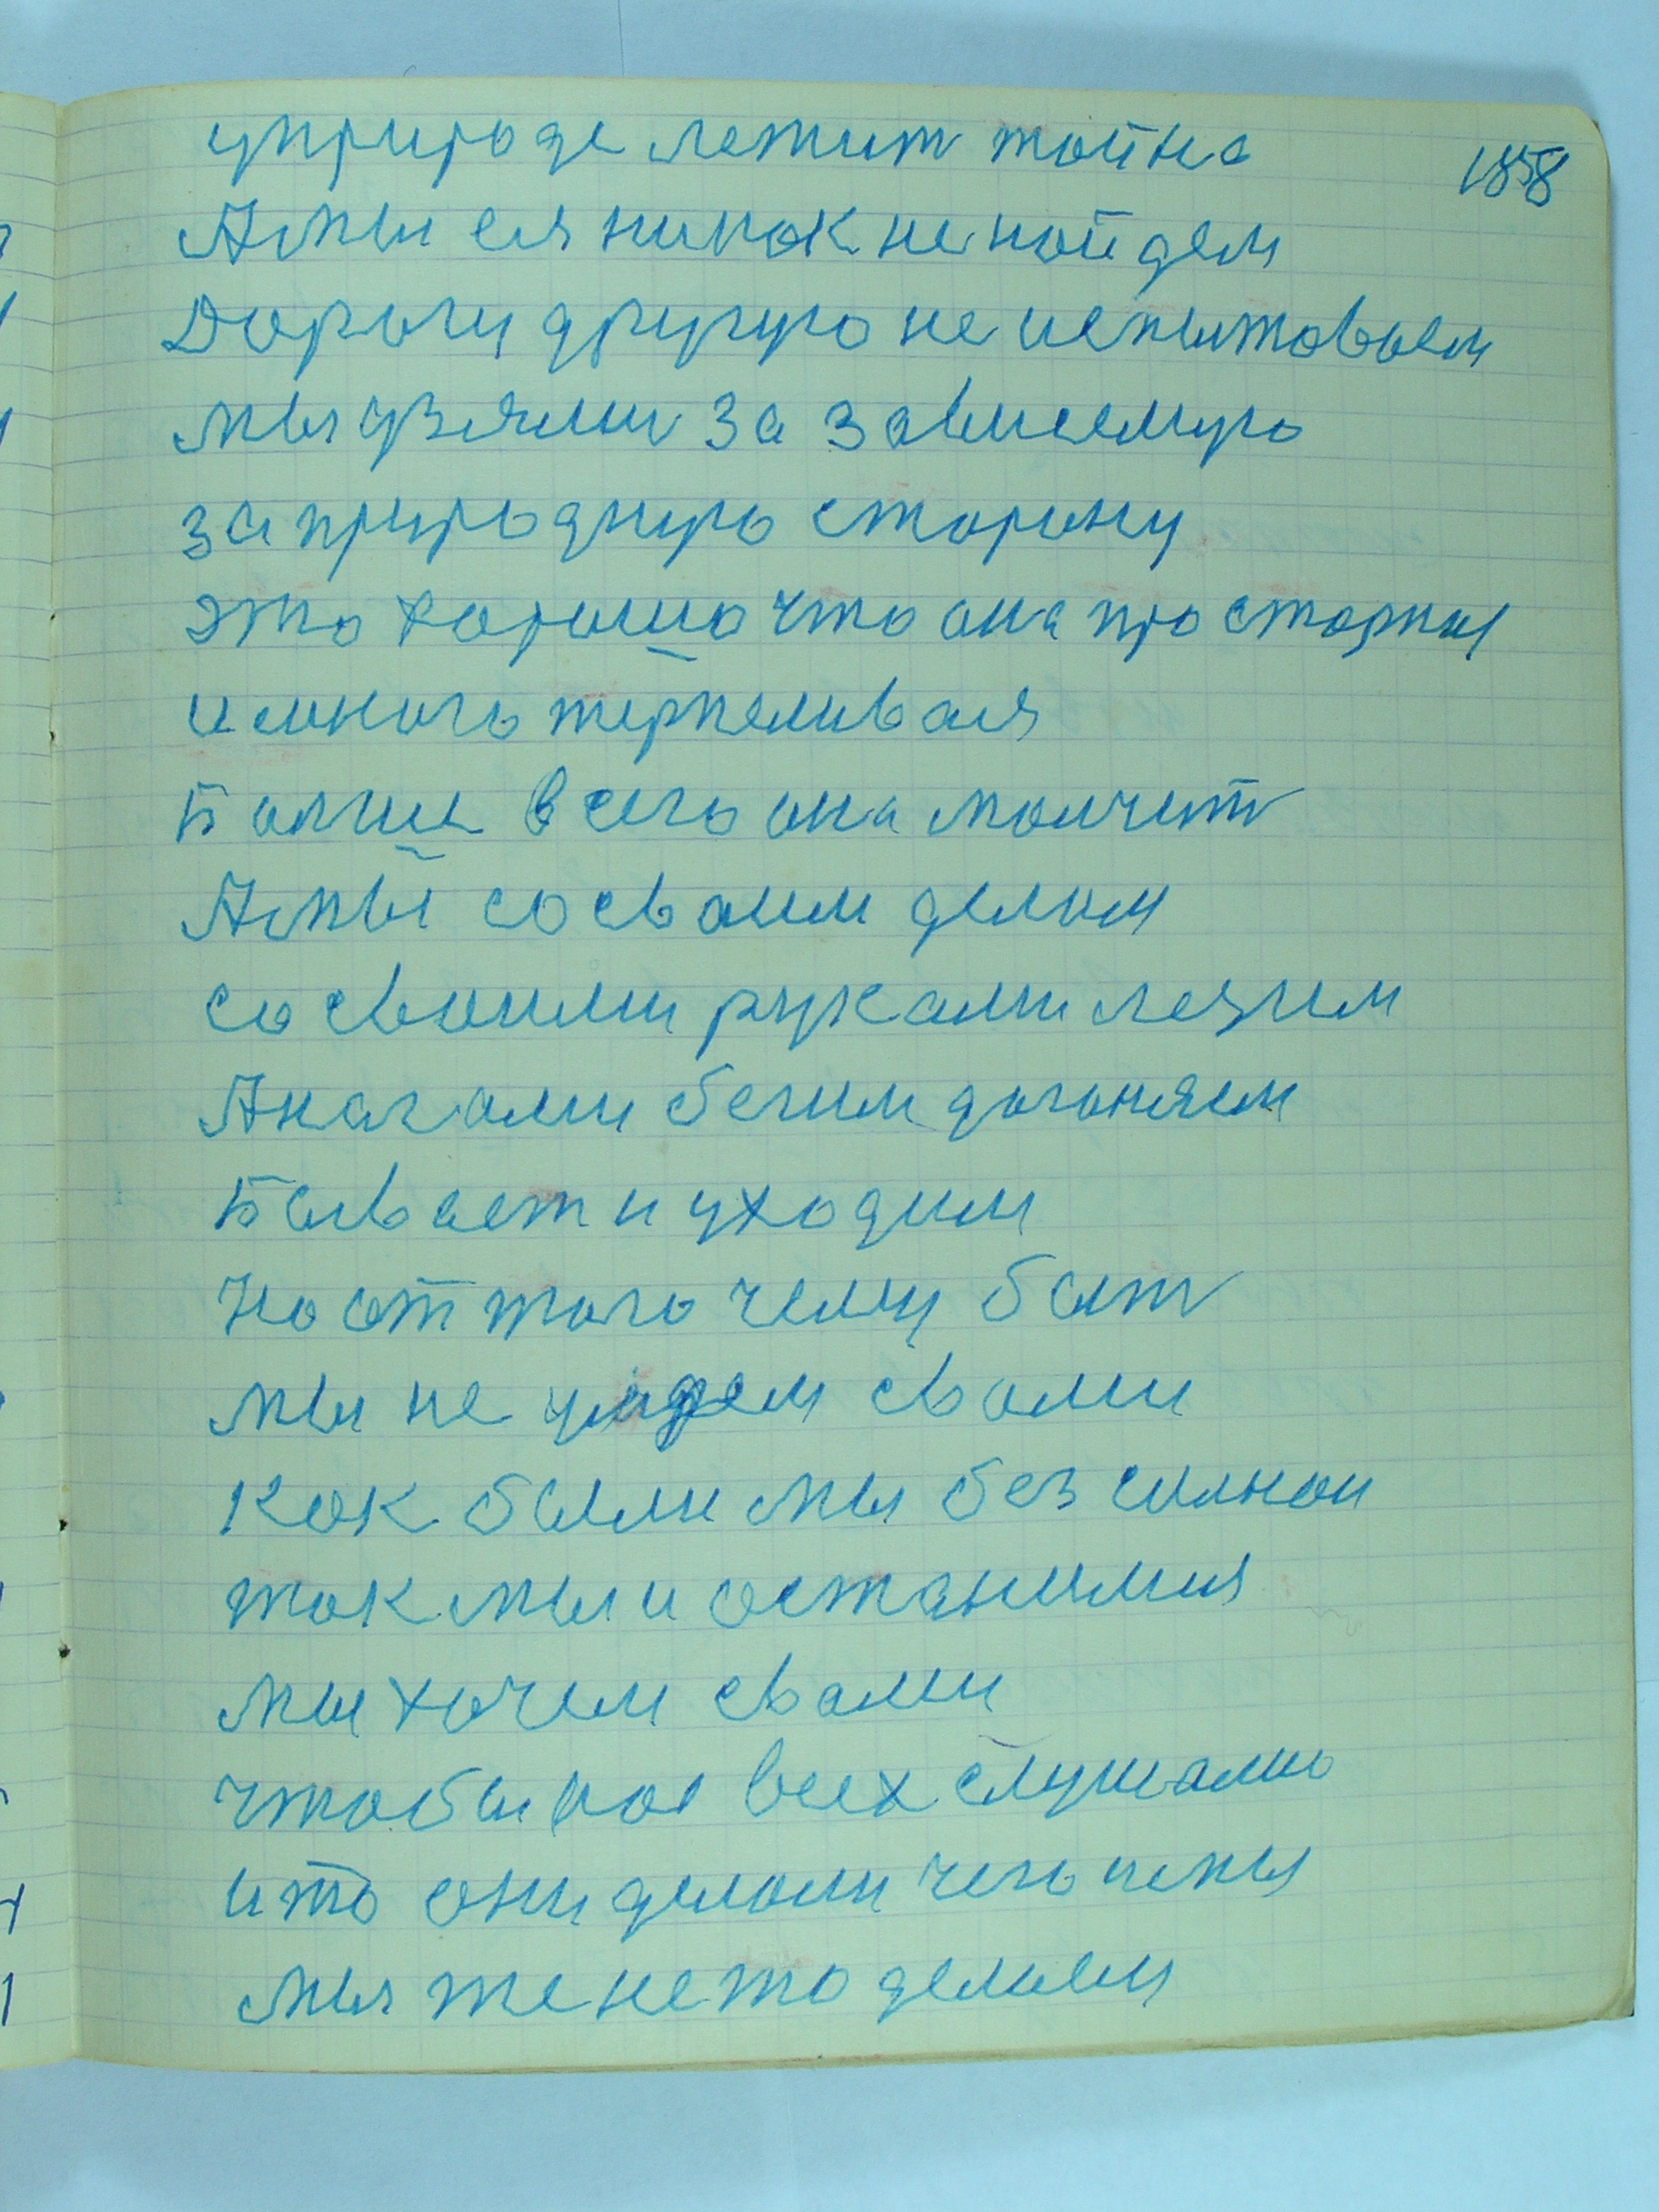 уприроде лежит тайна
1858
Амы ея никак не найдем
Дорогу другую не испытоваем
мы узяли за зависемую
за природную сторону
это хорошо что она просторная
и много терпеливая
Болши всего она молчит
Амы со своим делом
со своими руками лезим
Аногами бегим догоняем
Бывает и уходим
но от того чему быт
мы не уйдем свами
как были мы без силнои
так мы и останимия
мы хочем свами
чтобы нас всех слушали
и то они делали чего и мы
мы же не то делаем